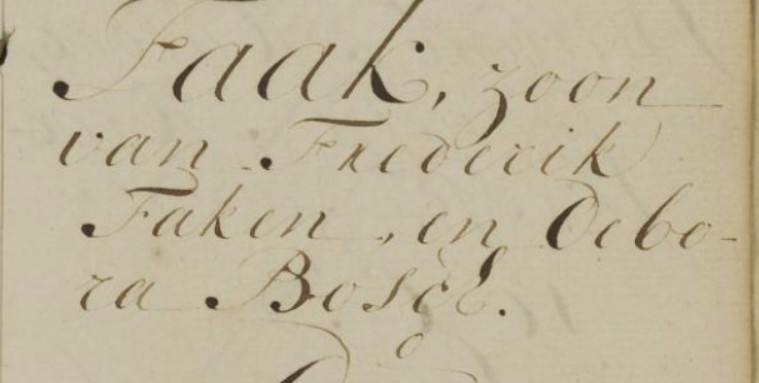 Faak, zoon
van Frederik
Faken, en Debo-
ra Bosch.